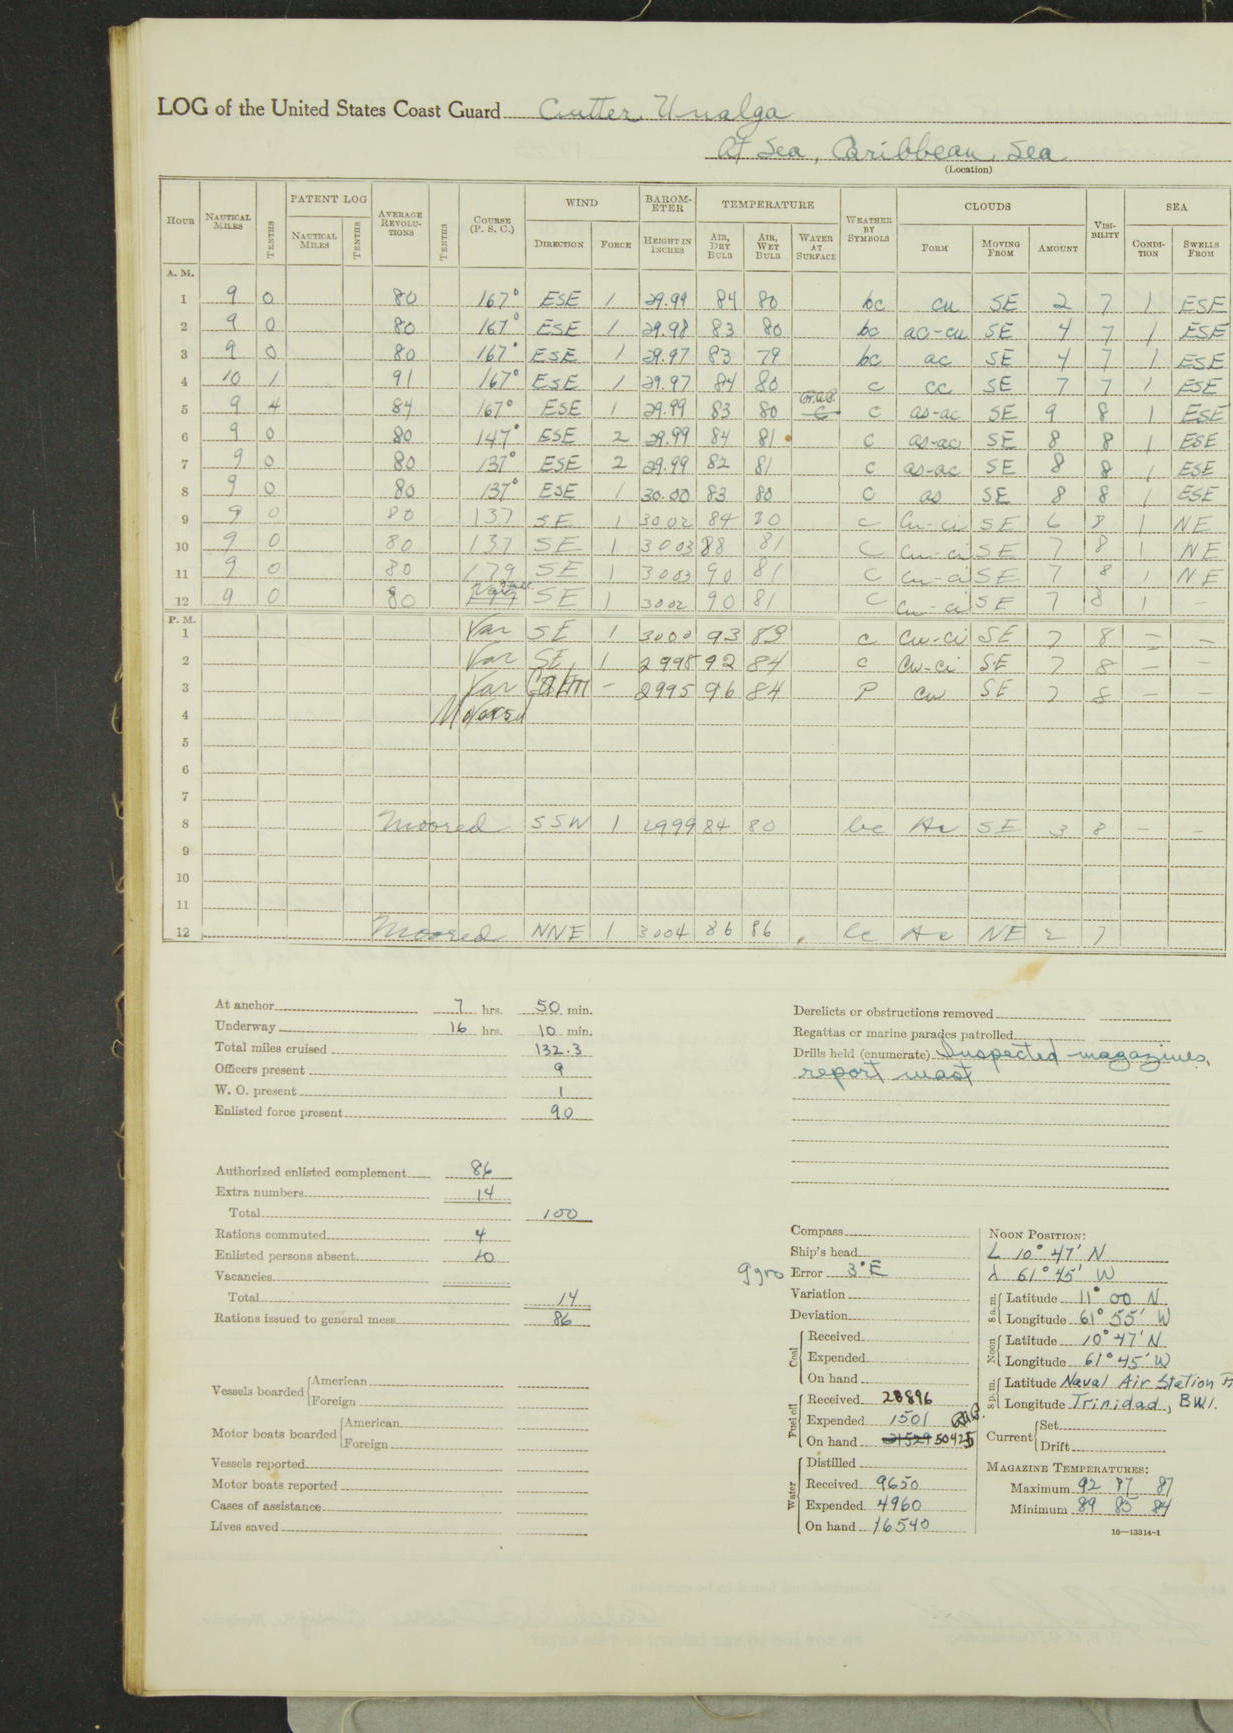 LOG of the United States Coast Guard Cutter Unalga
At Sea, Caribbean Sea
(Location)
HOUR NAUTICAL MILES TENTHS PATENT LOG NAUTICAL MILES TENTHS AVERAGE REVOLUTIONS TENTHS COURSE (P. S. C.) WIND DIRECTION FORCE BAROMETER HEIGHT IN INCHES TEMPERATURE AIR, DRY BULB AIR, WET BULB WATER AT SURFACE WEATHER BY SYMBOLS CLOUDS FORM MOVING FROM AMOUNT VISIBILITY SEA CONDITION SWELLS FROM
A. M.
1 9 0 80 167° ESE 1 29.99 84 80 bc cu SE 2 7 1 ESE
2 9 0 80 167° ESE 1 29.98 83 80 bc ac-cu SE 4 7 1 ESE
3 9 0 80 167° ESE 1 29.97 83 79 bc ac SE 4 7 1 ESE
4 10 1 91 167° ESE 1 29.97 84 80 c cc SE 7 7 1 ESE
5 9 4 84 167° ESE 1 29.99 83 80 c c as-ac SE 9 8 1 ESE
6 9 0 80 147° ESE 2 29.99 84 81 c as-ac SE 8 8 1 ESE
7 9 0 80 137° ESE 2 29.99 82 81 c as-ac SE 8 8 1 ESE
8 9 0 80 137° ESE 1 30.00 83 80 c as SE 8 8 1 ESE
9 9 0 80 137 SE 1 3002 84 80 c Cu-ci SE 6 8 1 NE
10 9 0 80 137 SE 1 3003 88 81 C Cu-ci SE 7 8 NE
11 9 0 80 179 SE 1 3003 90 81 C Cu-ci SE 7 8 1 NE
12 9 0 80 SE 1 3002 90 81 C Cu-ci SE 7 8 1 –
P. M.
1 Var SE 1 3000 93 89 c Cu-ci SE 7 8 – –
2 Var SE 1 2998 92 84 c Cu-ci SE 7 8 – –
3 Var CALM – 2995 96 84 P cu SE 7 8 – –
4 Moored
5
6
7
8 Moored SSW 1 2999 84 80 bc Ac SE 3 8 – –
9
10
11
12 Moored NNE 1 3004 86 86 bc Ac NE 2 7
At anchor 7 hrs. 50 min.
Underway 16 hrs. 10 min.
Total miles cruised 132.3
Officers present 9
W. O. present 1
Enlisted force present 90
Authorized enlisted complement 86
Extra numbers 14
Total 100
Rations commuted 4
Enlisted persons absent 10
Vacancies
Total 14
Rations issued to general mess 86
Vessels boarded American
Foreign
Motor boats boarded American
Foreign
Vessels reported
Motor boats reported
Cases of assistance
Lives saved
Derelicts or obstructions removed
Regattas or marine parades patrolled
Drills held (enumerate) Inspected magazines,
report mast
Compass
Ship's head
gyro Error 3°E
Variation
Deviation
Coal Received
Expended
On hand
Fuel oil Received 28896
Expended 1501
On hand 21529 50425
Water Distilled
Received 9650
Expended 4960
On hand 16540
NOON POSITION:
L 10° 47' N
λ 61° 45' W
8 a.m. Latitude 11° 00 N
Longitude 61° 55' W
Noon Latitude 10° 47' N
Longitude 61° 45' W
8 p.m. Latitude Naval Air Station
Longitude Trinidad, BWI.
Current Set
Drift
MAGAZINE TEMPERATURES:
Maximum 92 87 87
Minimum 89 85 84
16—13314-1